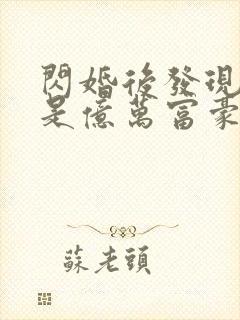 閃婚後發現
是億萬富豪
蘇老頭